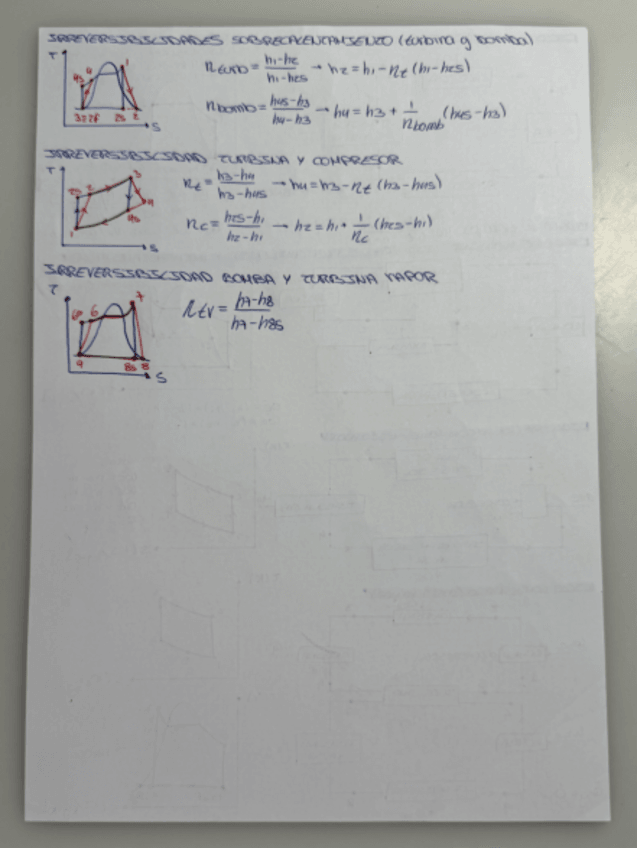 IRREVERSIBILIDADES SOBRECALENTAMIENTO (turbina y bomba)
T
4s 4 1
3=2f 2s 2
S
ηturb = h1-h2 / h1-h2s → h2 = h1 - ηt (h1-h2s)
ηbomb = h4s-h3 / h4-h3 → h4 = h3 + 1/ηbomb (h4s-h3)
IRREVERSIBILIDAD TURBINA Y COMPRESOR
T
2s 2 3
1 4s 4
S
ηt = h3-h4 / h3-h4s → h4 = h3 - ηt (h3-h4s)
ηc = h2s-h1 / h2-h1 → h2 = h1 + 1/ηc (h2s-h1)
IRREVERSIBILIDAD BOMBA Y TURBINA VAPOR
T
6 7
9 8s 8
S
ηtv = h7-h8 / h7-h8s